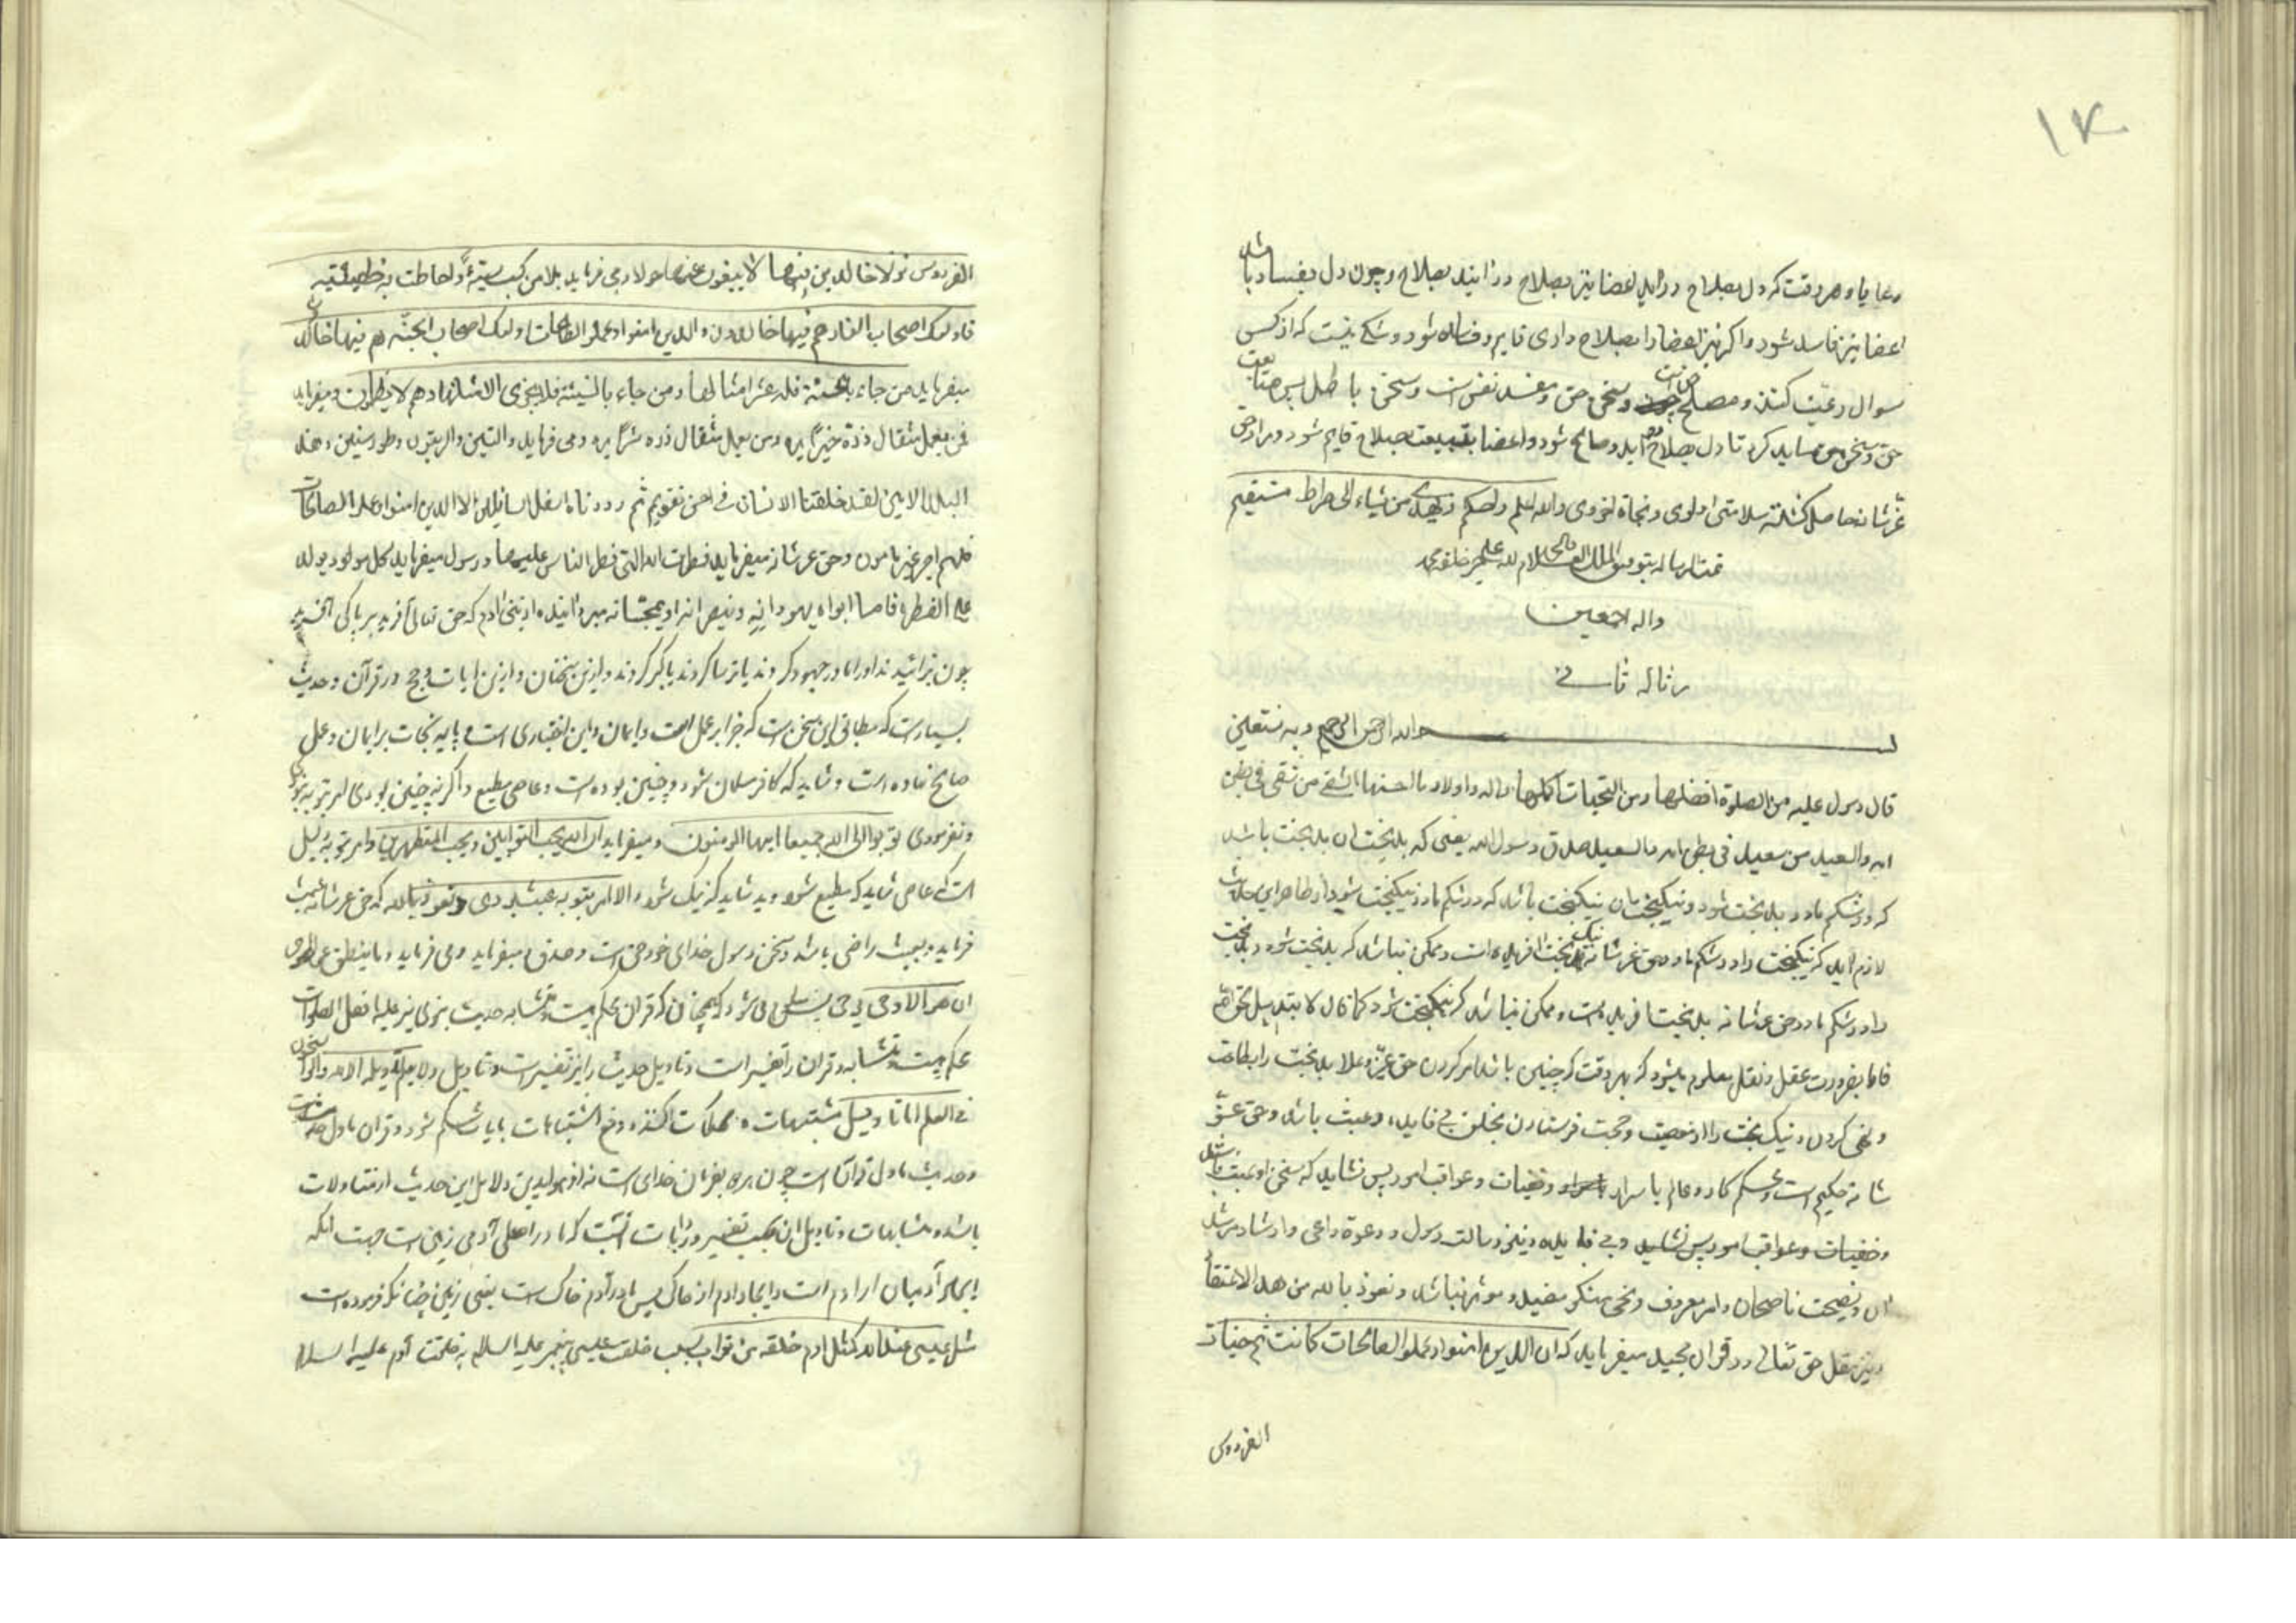 ١٧
رعایا و هر وقت که دل بصلاح در آید اعضا نیز بصلاح در آیند بصلاح و چون دل بفساد باشد
اعضا نیز فاسد شود و اکر نیز اعضا را بصلاح داری قایم و فساده شود و شکی نیست که از کسی
سوال رعیت کنند و مصلح وسخن حق و مفسد نفس است و سخن باطل پس متابعت
حق و سخن حق باید کرد تا دل بصلاح آید و صالح شود و اعضا بتبیعت بصلاح قایم شود و مراد حق
عز شانه حاصل کشته سلامتی اولوی و نجاة اخروی والله اعلم واحکم ویهدی من یشاء الی صراط مستقیم
تمت الرساله بتوفیق الملک العلام علی خیر خلقه محمد
واله اجمعین
رساله ثانی
بسم الله الرحمن الرحیم وبه نستعین
قال رسول علیه من الصلوة افضلها ومن التحیات اکملها واله واولاد بالحسنها الشقی من شقی فی بطن
امه والسعید من سعید فی بطن امه بالسعید صدق رسول الله یعنی که بدبخت ان بدبخت باشد
که در شکم مادر بدبخت شود و نیکبخت ان نیکبخت باشد که در شکم مادر نیکبخت شود از ظاهر این حدیث
لازم آید که نیکبخت را در شکم مادر حق عز شانه نیک بخت افریده است و ممکن نباشد که بدبخت شود و بدبخت
را در شکم مادر حق عز شانه بدبخت افریده است و ممکن نباشد که نیکبخت شود کما قال لا تبدیل لخلق الله
فاما بضرورت عقل و نقل معلوم میشود که بهر وقت که چنین باشد امر کردن حق عز وعلا بدبخت را بطاعت
و نهی کردن و نیک بخت را از معصیت و حجت فرستادن بخلق بی فایده و عبث باشد و حق عز
شانه حکیم است و محکم کار و عالم باسرار وخفیات وعواقب امور پس نشاید که سخن او عبث باشد
وخفیات وعواقب امور پس نشاید وبی فایده و نیز رسالت رسول و دعوة داعی وارشاد مرشد
ان ونصیحت ناصحان وامر معروف ونهی منکر مفید و موثر نباشد ونعوذ بالله من هذا الاعتقاد
ونیز بنقل حق تعالی در قران مجید میفرماید که ان الذین امنوا وعملوا الصالحات کانت لهم جنات
الفردوس
الفردوس نزلا خالدین فیها لا یبغون عنها حولا ومی فرماید بلا من کسب سیئة واحاطت به خطیئته
فاولئک اصحاب النار هم فیها خالدون والذین امنوا وعملوا الصالحات اولئک اصحاب الجنة هم فیها خالدون
میفرماید من جاء بالحسنة فله عشر امثالها ومن جاء بالسیئة فلا یجزی الا مثلها وهم لا یظلمون ومیفرماید
فمن یعمل مثقال ذرة خیرا یره ومن یعمل مثقال ذره شرا یره ومی فرماید والتین والزیتون وطور سنین وهذا
البلد الامین لقد خلقنا الانسان فی احسن تقویم ثم رددناه اسفل السافلین الا الذین امنوا وعملوا الصالحات
فلهم اجر غیر ممنون وحق عز شانه میفرماید فطرت الله التی فطر الناس علیها ورسول میفرماید کل مولود یولد
علی الفطرة فاما ابواه یهودانه وینصرانه او یمجسانه میدانند از بنی ادم که حق تعالی آفرید بر پاکی آفرید
چون زائیدند او را مادر جهود کردند یا ترسا کردند یا کبر کردند و این سخنان و ازین ایات و حجج در قرآن وحدیث
بسیارست که مطابق این سخن است که جزا بر عمل است وایمان و این اختیاری است و پایه نجات بر ایمان و عمل
صالح نهاده است و شاید که کافر مسلمان شود و چنین بوده است و عاصی مطیع و اکر نه چنین بودی امر بتوبه نبودی
ونفرمودی توبوا الی الله جمیعا ایها المومنون ومیفرماید ان الله یحب التوابین ویحب المتطهرین وامر بتوبه دلیل
است که عاصی شاید که مطیع شود و بد شاید که نیک شود والا امر بتوبه عبث بودی ونعوذ بالله که حق عز شانه بعبث
فرماید و بعبث راضی باشد و سخن رسول خدای خود حق است و صدق میفرماید ومی فرماید وما ینطق عن الهوی
ان هو الا وحی یوحی پس میشود که همچنان که قران محکم هست ومتشابه حدیث نبوی نیز علیه افضل الصلوات
محکم هست ومتشابه وقران را تفسیر است و تاویل حدیث را نیز تفسیر است وتاویل ولا یعلم تاویله الا الله والراسخون
فی العلم اما تاویل مشتبهات محکمات کنند و دفع اشتباهات بایات محکم شود و قران ماول حدیث
وحدیث ماول قرآن است چون هر دو بفرمان خدای است
باشد ومتشابهات وتاویل ان بحسب تفسیر ورایات انست که مادر اصلی آدمی زمین است جهت انکه
ایجاد آدمیان از ادم است وایجاد ادم از خاک پس مادر آدم خاک است یعنی زمین چنانکه فرموده است
مثل عیسی عند الله کمثل ادم خلقه من تراب بسبب خلقت عیسی پیغمبر علیه السلام به خلقت آدم علیه السلام